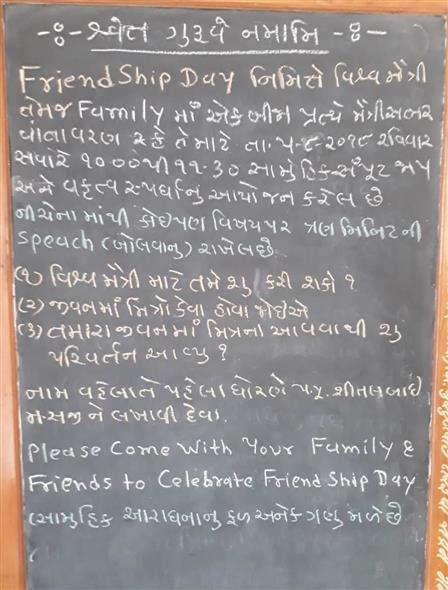 -ઃ- શ્વેત ગુરૂવે નમામિ -ઃ-
FriendShip Day નિમિત્તે વિશ્વ મૈત્રી
તેમજ Family માં એક બીજા પ્રત્યે મૈત્રીસભર
વાતાવરણ રહે તે માટે તા. ૫-૮-૨૦૧૮ રવિવાર
સવારે ૧૦.૦૦થી ૧૧-૩૦ સામુહિક સંપૂટ જાપ
અને વકૃત્વ સ્પર્ધાનુ આયોજન કરેલ છે
નીચેના માંથી કોઈપણ વિષયપર ત્રણ મિનિટની
Speach (બોલવાનુ) રાખેલ છે
(૧) વિશ્વ મૈત્રી માટે તમે શુ કરી શકો ?
(૨) જીવનમાં મિત્રો કેવા હોવા જોઈએ
(૩) તમારા જીવનમાં મિત્રના આવવાથી શુ
પરિવર્તન આવ્યુ ?
નામ વહેલા તે પહેલા ધોરણે પ.પૂ. શીતલબાઈ
મ.સજી ને લખાવી દેવા.
Please Come With Your Family &
Friends to Celebrate FriendShip Day
(સામુહિક આરાધનાનુ ફળ અનેક ગણુ મળે છે